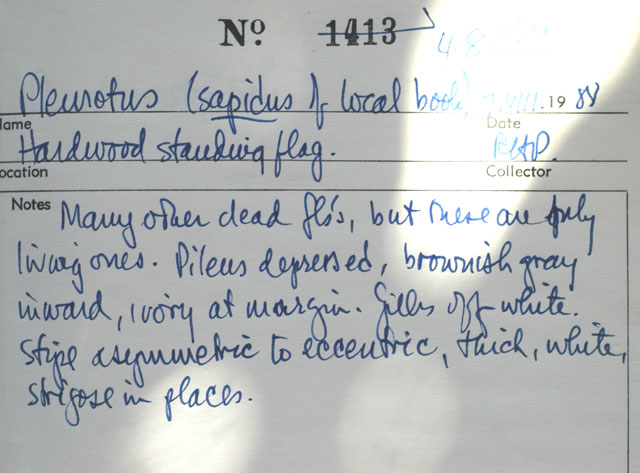 Nº 1413
Pleurotus (sapidus of local book) .VIII.19 88
ame Date
Hardwood standing flag. RHP.
ocation Collector
Notes Many other dead flo's, but there are only
living ones. Pileus depressed, brownish gray
inward, ivory at margin. Gills off-white.
Stipe asymmetric to eccentric, thick, white,
strigose in places.